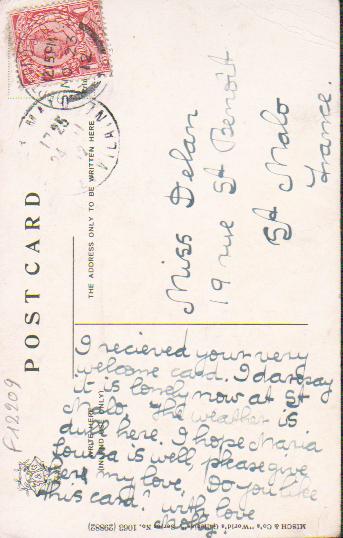 POST CARD
THE ADDRESS ONLY TO BE WRITTEN HERE
Miss Delan
19 rue St Benoît
St Malo
France.
I recieved your very
welcome card. I daresay
it is lovely now at St
Malo. The weather is
dull here. I hope Maria
Louisa is well, please give
her my love. Do you like
this card? With love
MISCH & Co's "World's Galleries" Series No. 1063 (29882)
F12209